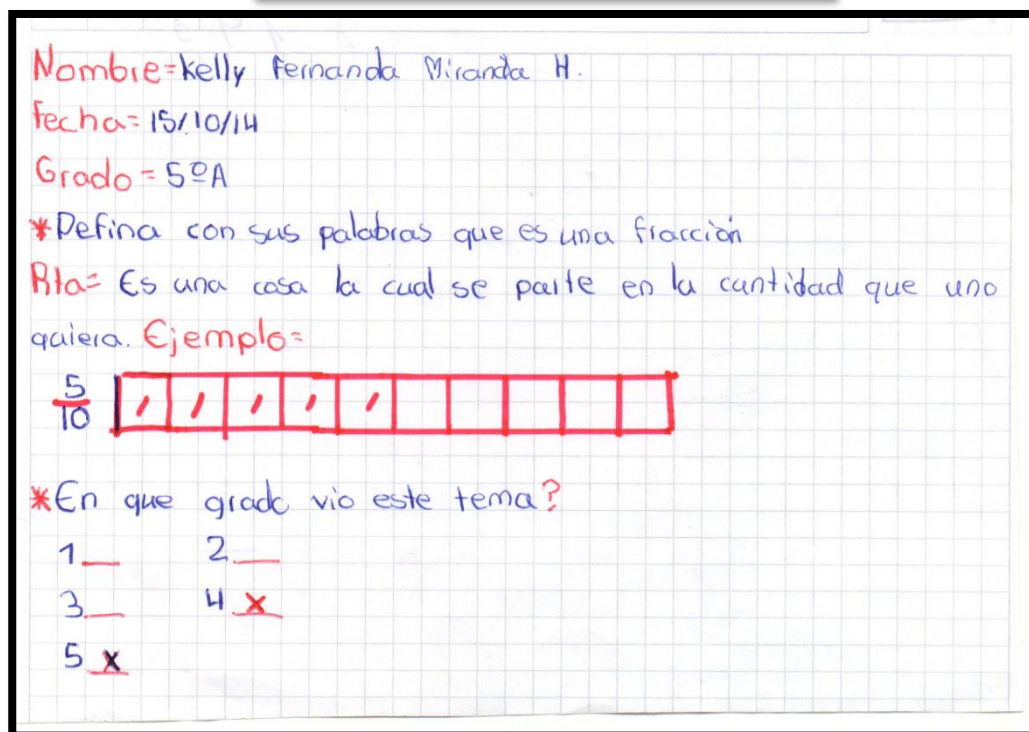 Nombre=Kelly Fernanda Miranda H.
Fecha=15/10/14
Grado=5ºA
*Defina con sus palabras que es una fracción
Rta= Es una cosa la cual se parte en la cantidad que uno
quiera. Ejemplo=
5/10
*En que grado vio este tema?
1__ 2__
3__ 4 x
5 x